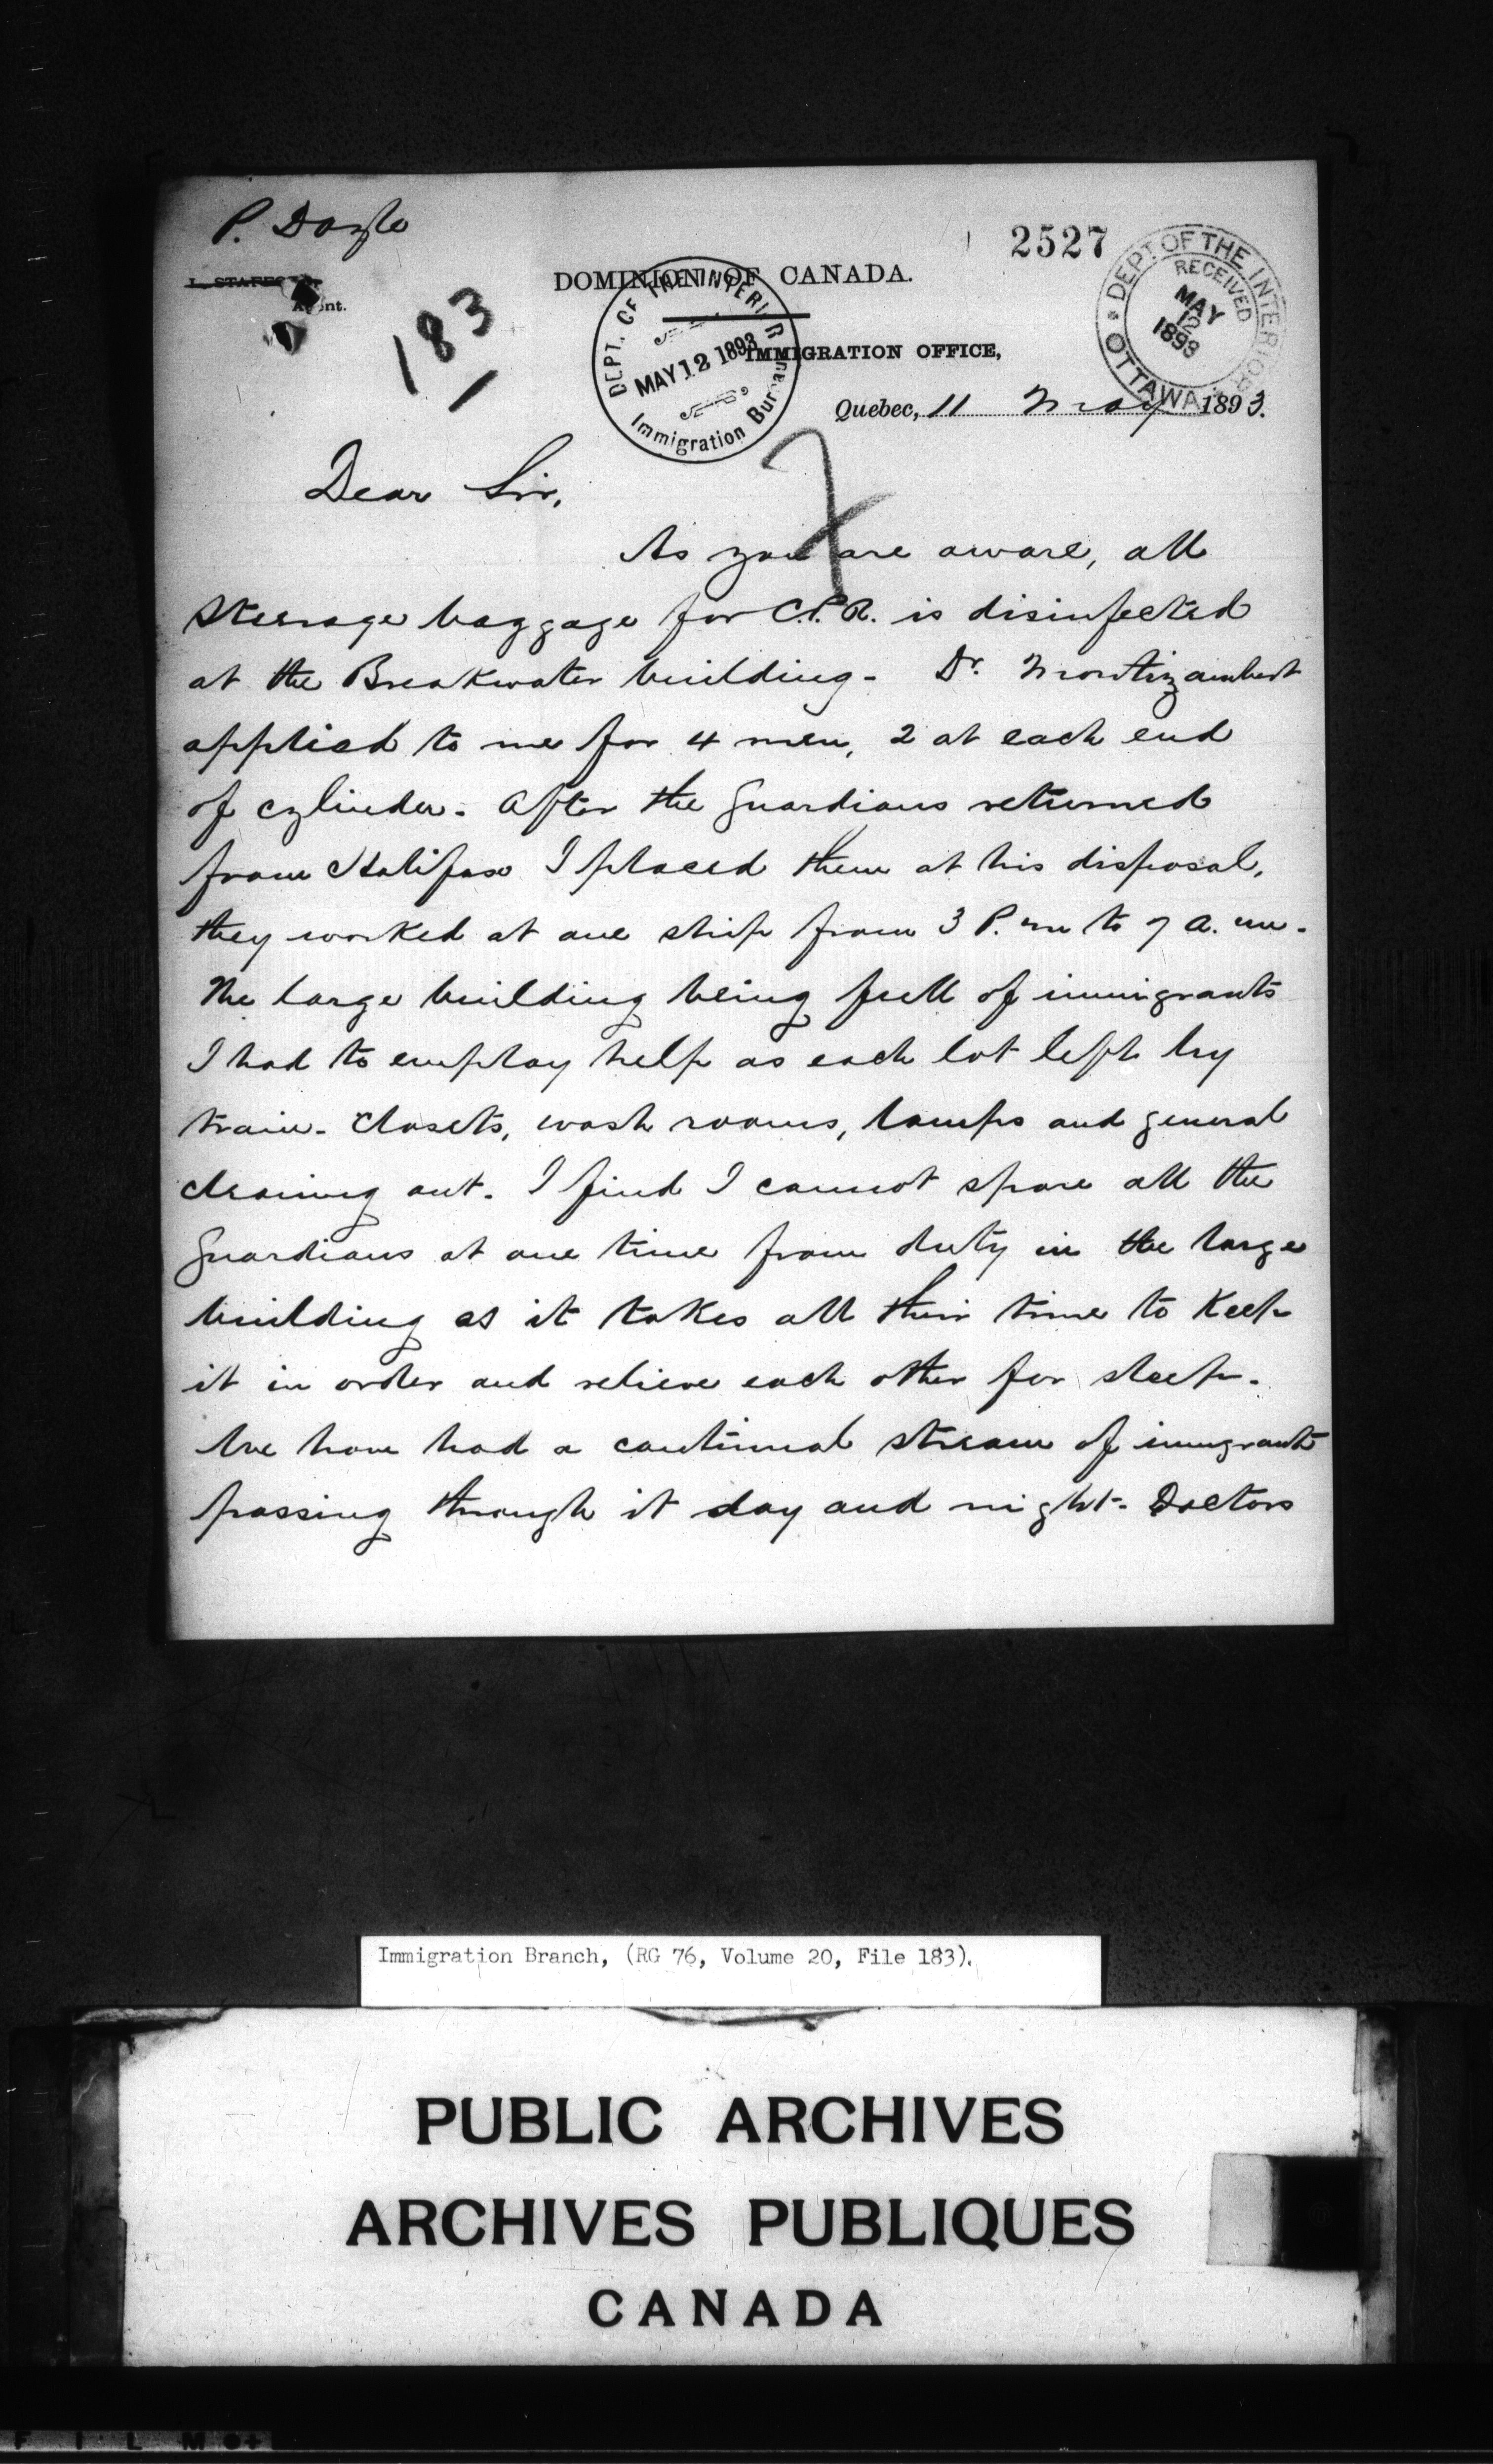 P. Doyle
2527
L. STAFFORD
Agent.
183
1
DOMINION OF CANADA.
DEPT. OF THE INTERIOR
MAY 12 1893
Immigration Bureau
DEPT OF THE INTERIOR
RECEIVED
MAY
12
1893
OTTAWA
IMMIGRATION OFFICE,
Quebec, 11 May 1893.
Dear Sir,
As you are aware, all
Steerage baggage for C.P.R. is disinfected
at the Breakwater building - Dr. Montizambert
applied to me for 4 men, 2 at each end
of cylinder. After the Guardians returned
from Halifax I placed them at his disposal,
they worked at one ship from 3 P.m to 7 a.m.
The large building being full of immigrants
I had to employ help as each lot left by
train. Closets, wash rooms, lamps and general
cleaning out. I find I cannot spare all the
Guardians at one time from duty in the large
building as it takes all their time to Keep
it in order and relieve each other for sleep.
We have had a continual stream of immigrants
passing through it day and night. Doctors
Immigration Branch, (RG 76, Volume 20, File 183).
PUBLIC ARCHIVES
ARCHIVES PUBLIQUES
CANADA
FILM